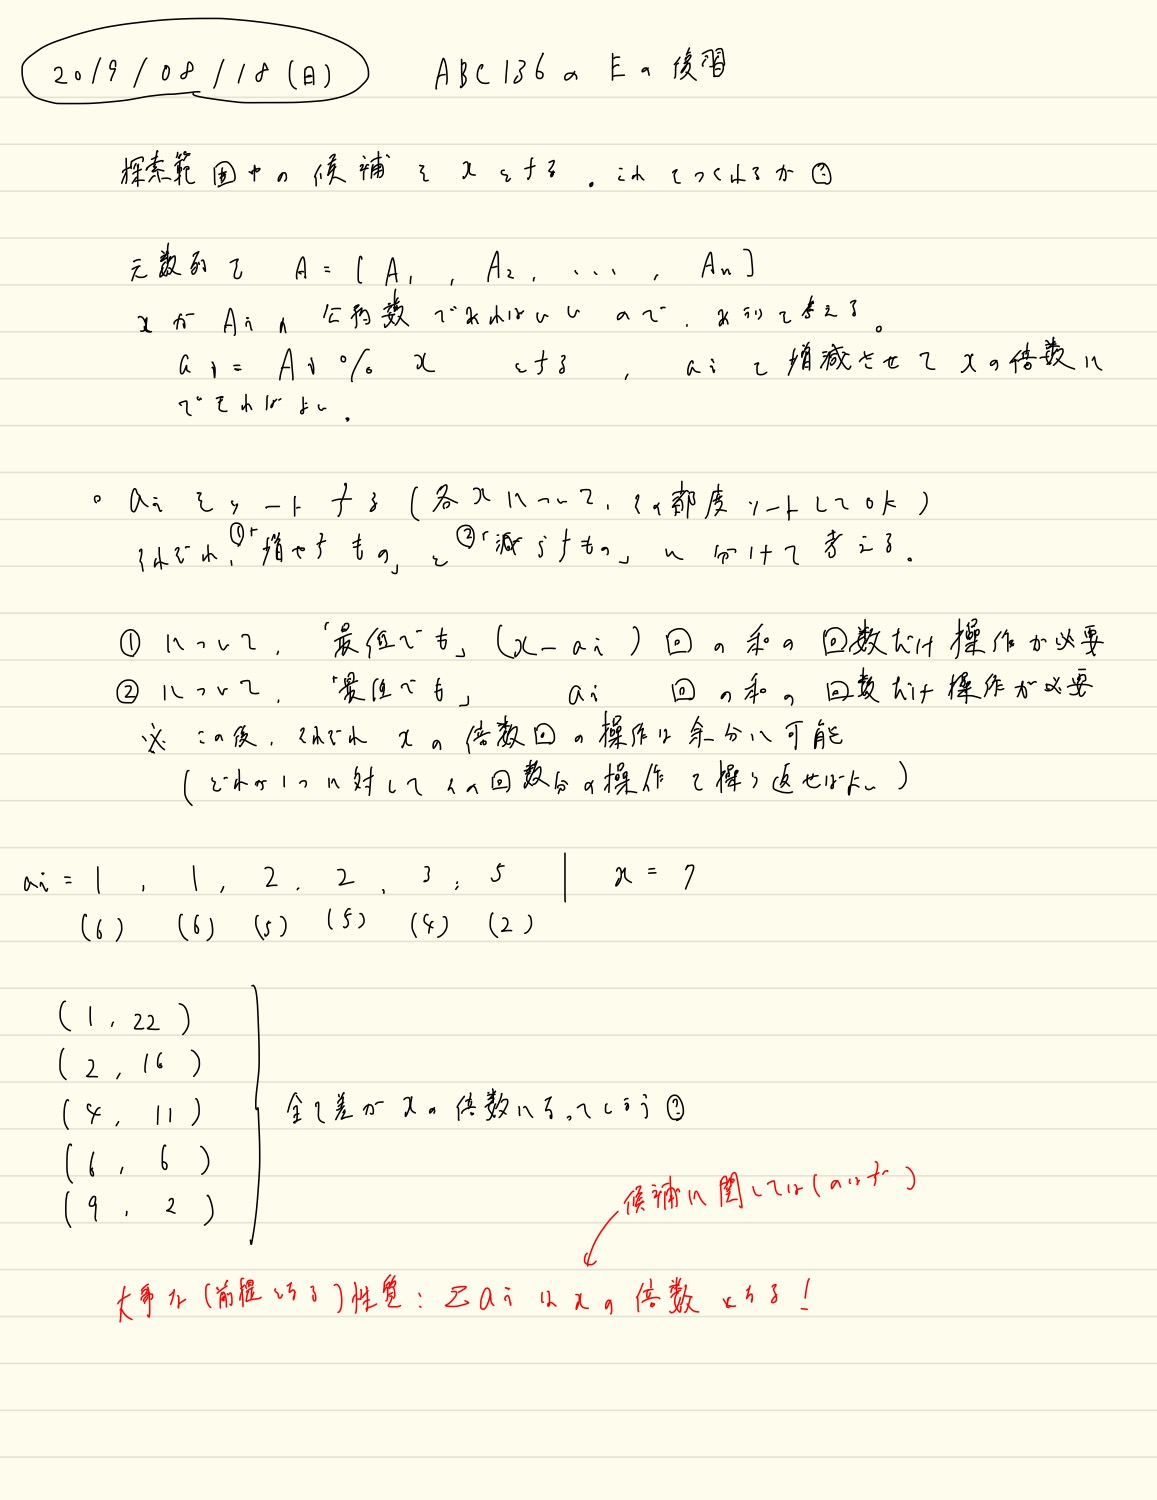 2019/08/18(日) ABC136のEの復習
探索範囲中の候補をxとする。これでつくれるか?
元数列を A = [A1, A2, ..., An]
xがAiの公約数であればいいので、あまりで考える。
ai = Ai % x とする, aiを増減させてxの倍数に
できればよい。
○ aiをソートする(各xについて、その都度ソートしてOK)
それぞれ、①「増やすもの」と②「減らすもの」に分けて考える。
① について、「最低でも」(x-ai)回の和の回数だけ操作が必要
② について、「最低でも」 ai 回の和の回数だけ操作が必要
※ この後、それぞれxの倍数回の操作は余分に可能
(どれか1つに対してその回数分の操作を繰り返せばよい)
ai = 1, 1, 2, 2, 3, 5 | x = 7
(6) (6) (5) (5) (4) (2)
(1, 22)
(2, 16)
(4, 11)
(6, 6)
(9, 2)
全て差がxの倍数になってしまう?
候補に関しては(のはず)
大事な(前提となる)性質: Σaiはxの倍数となる!